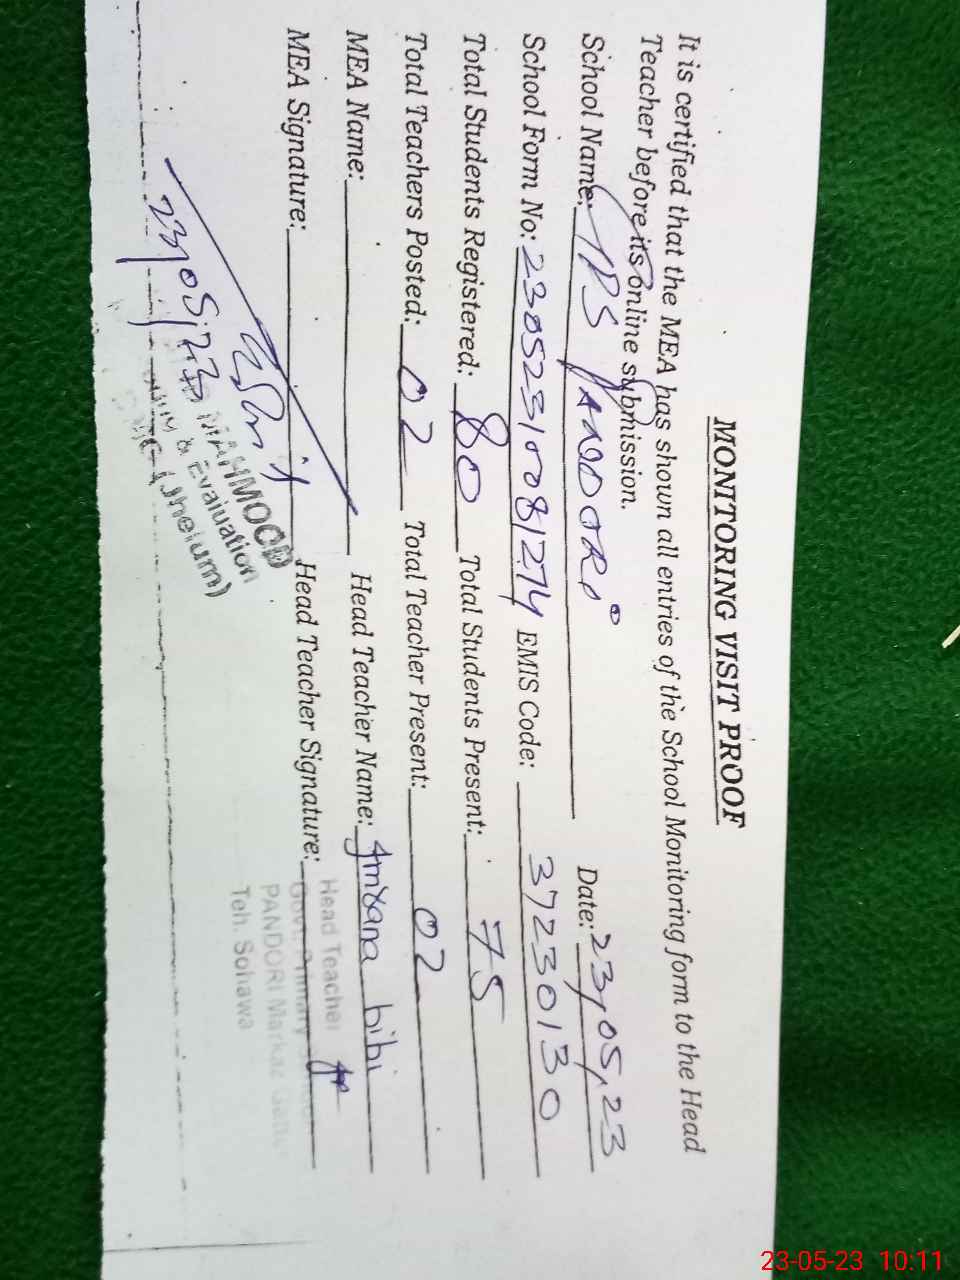 MONITORING VISIT PROOF
It is certified that the MEA has shown all entries of the School Monitoring form to the Head
Teacher before its online submission.
School Name: GPS PANDORI Date: 23/05/23
School Form No: 23052310081274 EMIS Code: 37230130
Total Students Registered: 80 Total Students Present: 75
Total Teachers Posted: 02 Total Teacher Present: 02
MEA Name: Head Teacher Name: Imrana bibi
MEA Signature: Head Teacher Signature:
23/05/23
MAHMOOD
& Evaluation
(Jhelum)
Head Teacher
Govt. Primary School
PANDORI Markaz
Teh. Sohawa
23-05-23 10:11